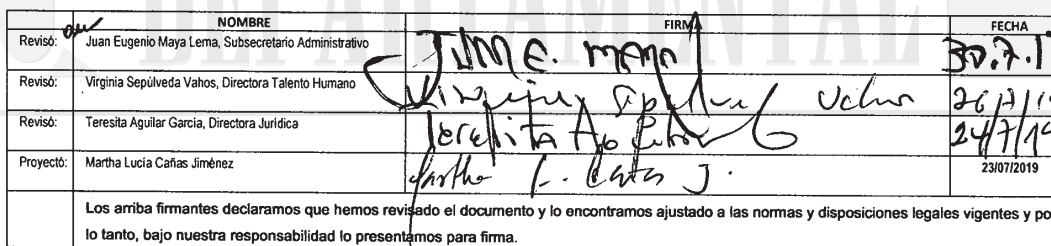 DEPARTAMENTAL
NOMBRE FIRMA FECHA
Revisó: Juan Eugenio Maya Lema, Subsecretario Administrativo JUAN E. MAYA 30.7.1
Revisó: Virginia Sepúlveda Vahos, Directora Talento Humano Virginia Sepúlveda Vahos 26/7/19
Revisó: Teresita Aguilar García, Directora Jurídica Teresita Aguilar 24/7/19
Proyectó: Martha Lucía Cañas Jiménez Martha L. Cañas J. 23/07/2019
Los arriba firmantes declaramos que hemos revisado el documento y lo encontramos ajustado a las normas y disposiciones legales vigentes y po
lo tanto, bajo nuestra responsabilidad lo presentamos para firma.